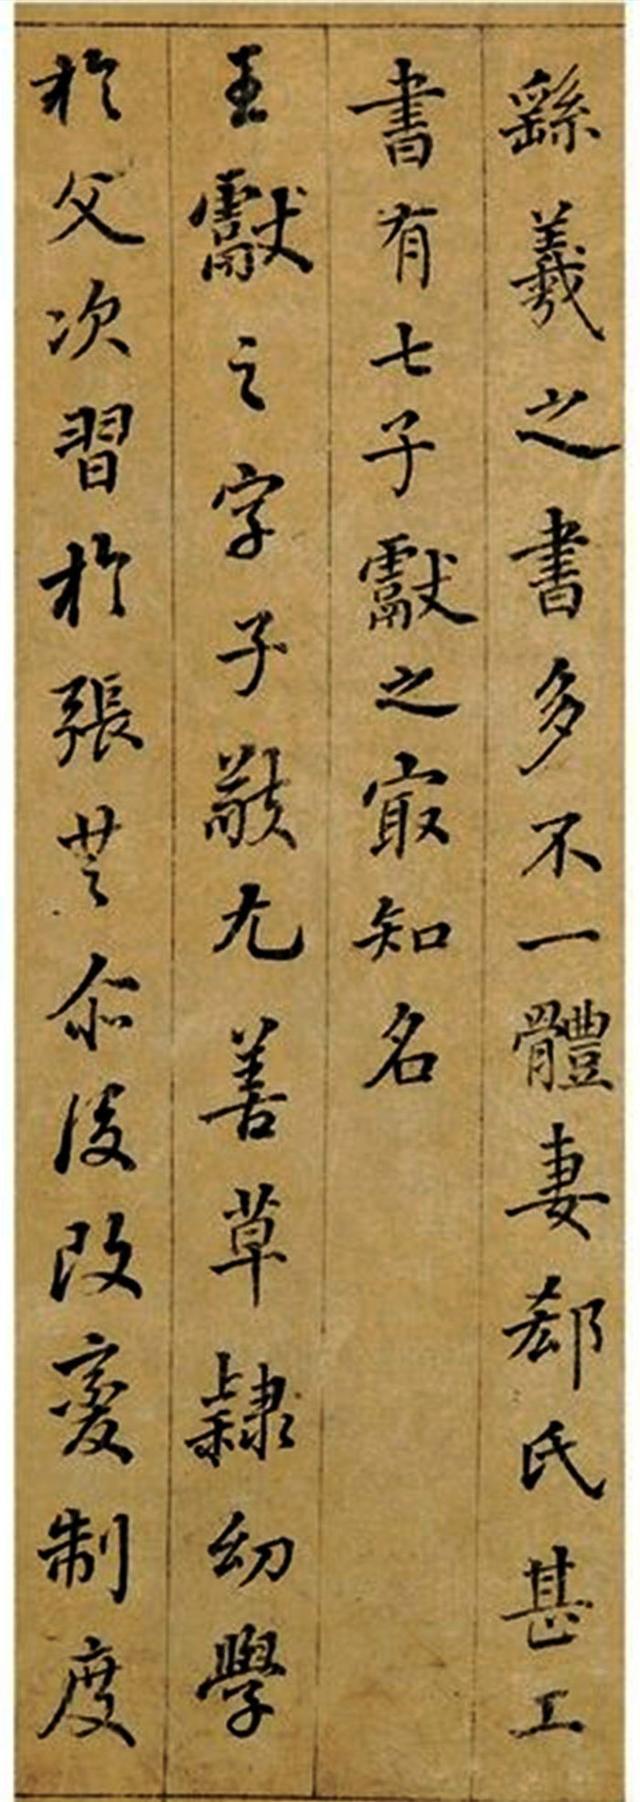 繇羲之書多不一體妻郄氏甚工
書有七子獻之㝡知名
王獻之字子敬尤善草隸幼學
於父次習於張芝尒後改變制度